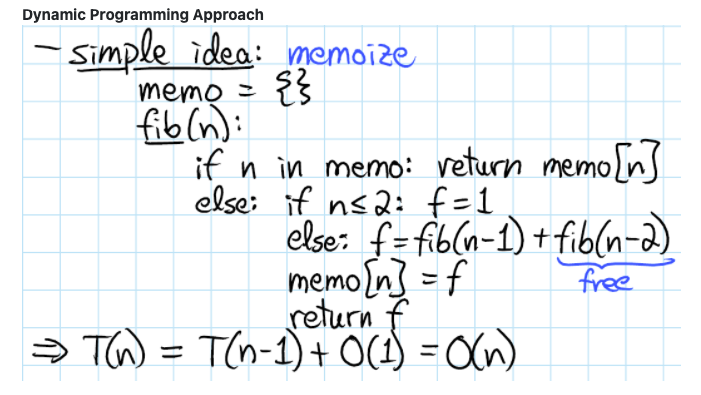 Dynamic Programming Approach
- simple idea: memoize
memo = {}
fib(n):
if n in memo: return memo[n]
else: if n≤2: f=1
else: f=fib(n-1)+fib(n-2)
free
memo[n] = f
return f
⇒ T(n) = T(n-1)+ O(1) = O(n)